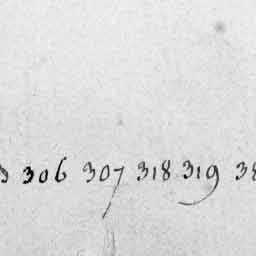 306 307 318 319